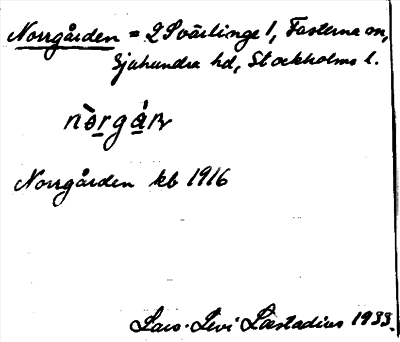 Norrgården = 2 Svärlinge 1, Fasterna sn,
Sjuhundra hd, Stockholms l.
nòrgá̱n
Norrgården kb 1916
Lars-Levi Læstadius 1933.